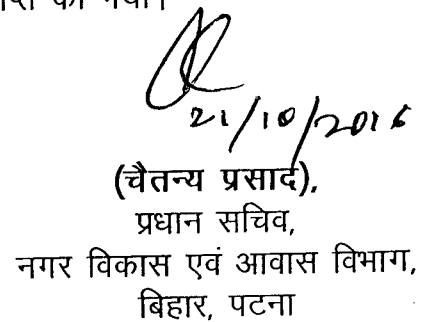 की गयी।
21/10/2016
(चैतन्य प्रसाद),
प्रधान सचिव,
नगर विकास एवं आवास विभाग,
बिहार, पटना